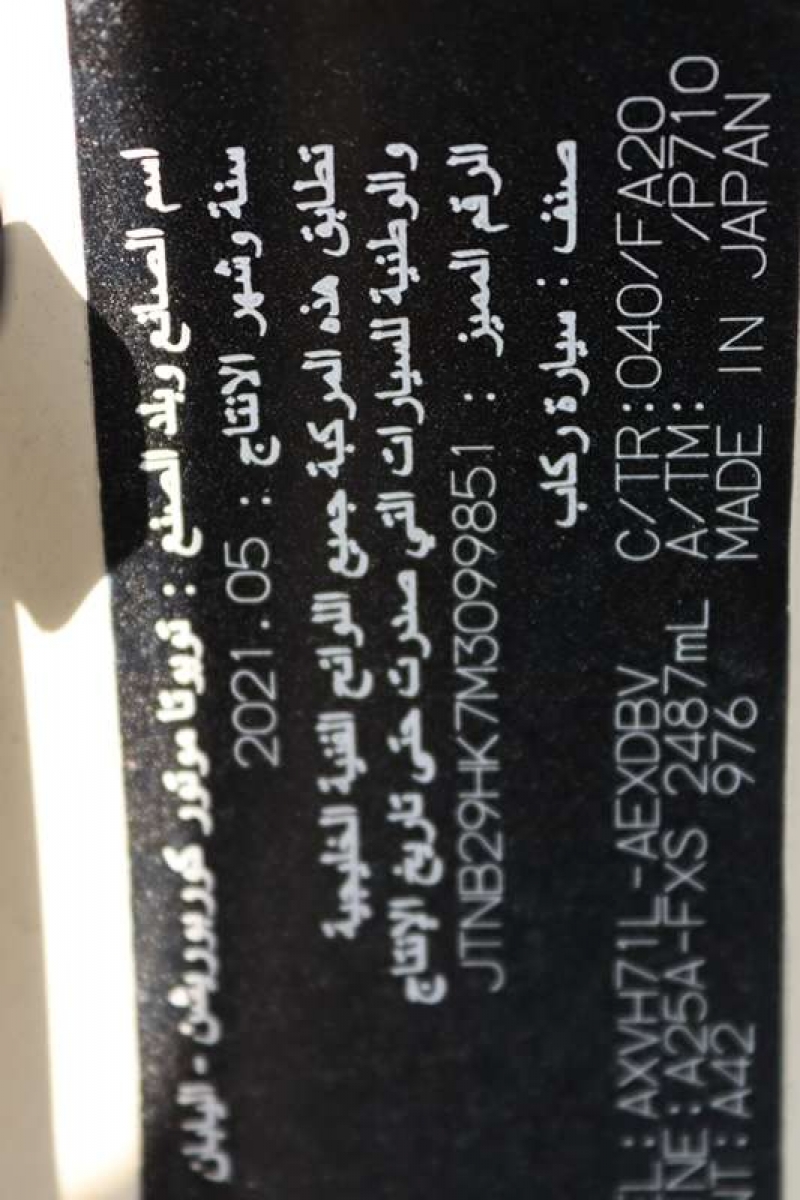 اسم الصانع وبلد الصنع : تويوتا موتور كوربوريشن - اليابان
سنة وشهر الانتاج : 2021.05
تطابق هذه المركبة جميع اللوائح الفنية الخليجية
والوطنية للسيارات التي صدرت حتى تاريخ الإنتاج
الرقم المميز : JTNB29HK7M3099851
صنف : سيارة ركاب
L: AXVH71L-AEXDBV C/TR: 040/FA20
NE: A25A-FXS 2487mL A/TM: /P710
T: A42 976 MADE IN JAPAN